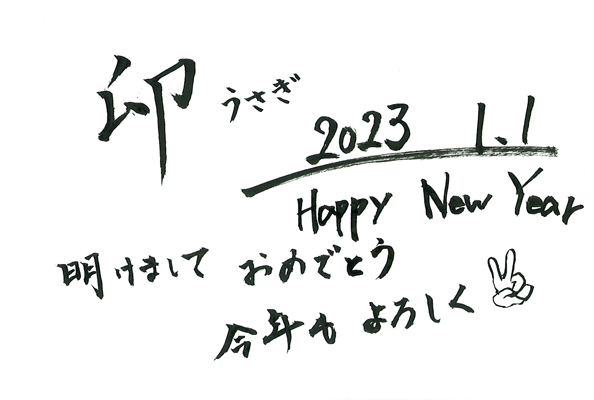 印 うさぎ
2023 1.1
Happy New Year
明けまして おめでとう
今年も よろしく